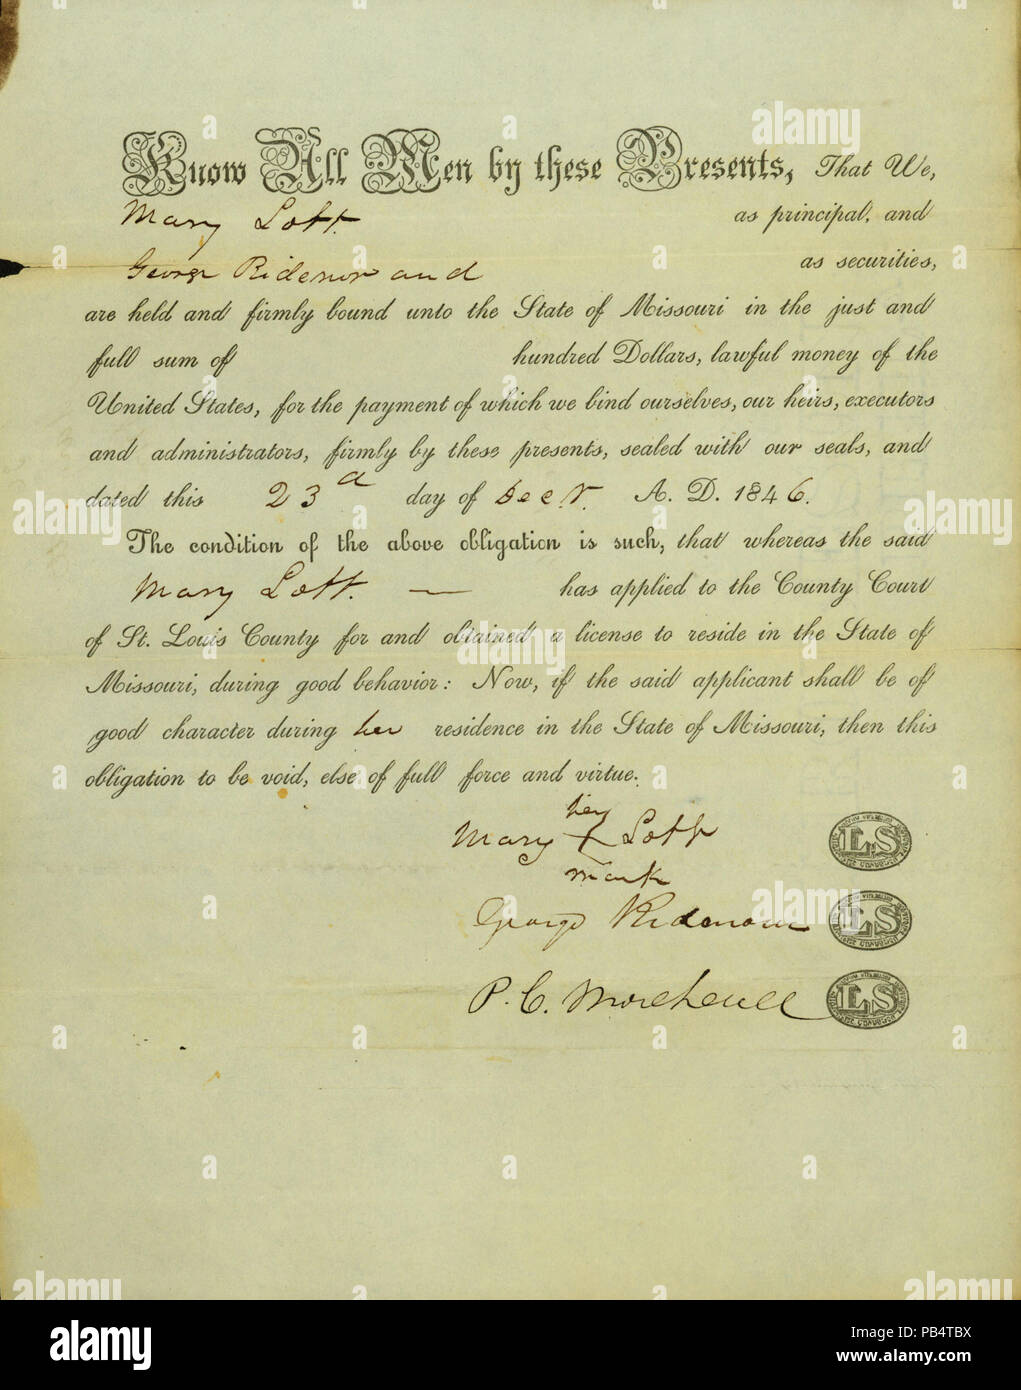 Know All Men by these Presents, That We,
Mary Lott. as principal, and
George Ridenor and as securities,
are held and firmly bound unto the State of Missouri in the just and
full sum of hundred Dollars, lawful money of the
United States, for the payment of which we bind ourselves, our heirs, executors
and administrators, firmly by these presents, sealed with our seals, and
dated this 23d day of Decr. A. D. 1846.
The condition of the above obligation is such, that whereas the said
Mary Lott. — has applied to the County Court
of St. Louis County for and obtained a license to reside in the State of
Missouri, during good behavior: Now, if the said applicant shall be of
good character during her residence in the State of Missouri, then this
obligation to be void, else of full force and virtue.
her
Mary X Lott LS
mark
George Ridenour LS
P. C. LS
alamy
www.alamy.com
Image ID: PB4TBX